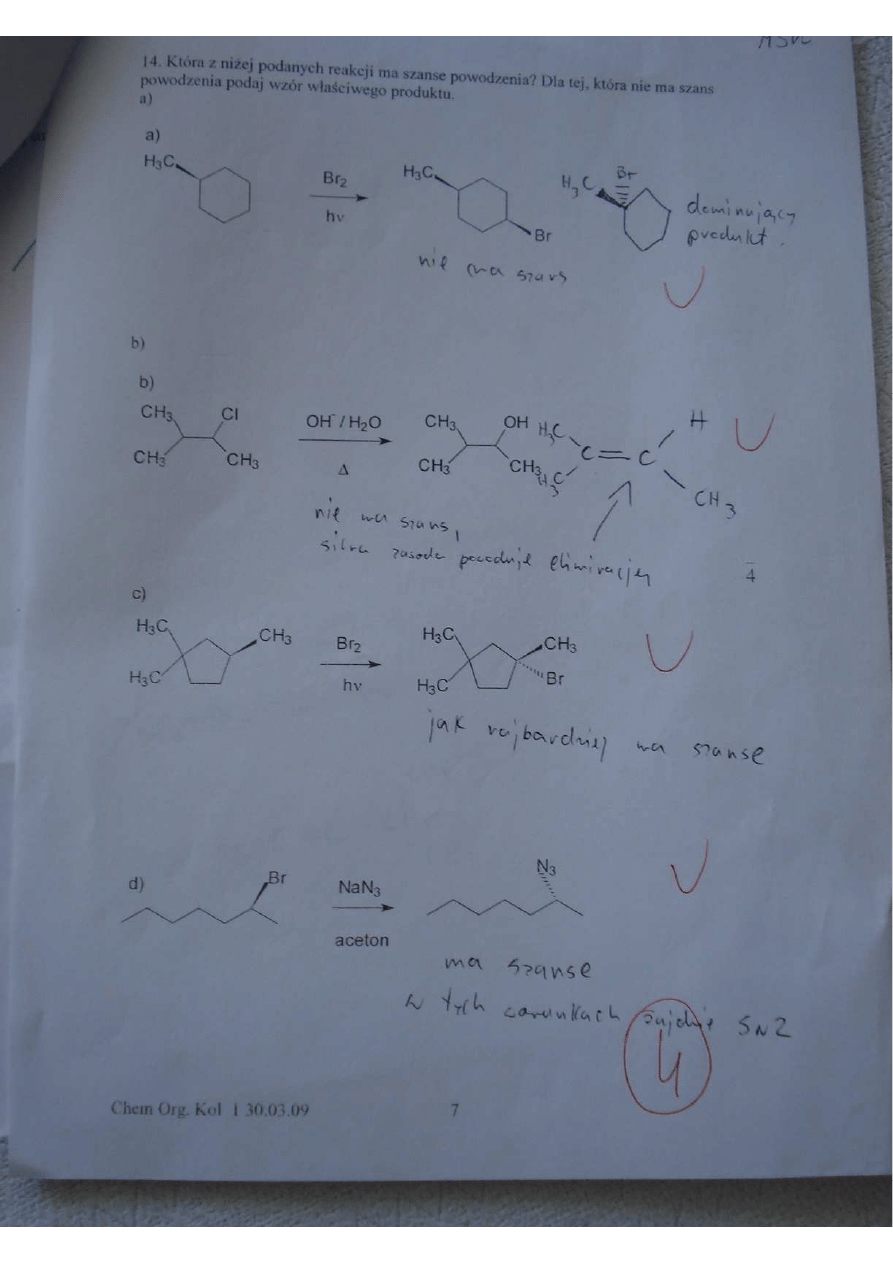 14. Która z niżej podanych reakcji ma szanse powodzenia? Dla tej, która nie ma szans
powodzenia podaj wzór właściwego produktu.
a)
a)
H₃C
Br₂
hν
H₃C
Br
H₃C
Br
dominujący
produkt.
nie ma szans
b)
b)
CH₃
Cl
CH₃
CH₃
OH⁻/H₂O
Δ
CH₃
OH
CH₃
CH₃
H₃C
H₃C
C=C
H
CH₃
nie ma szans,
silna zasada powoduje eliminację
4
c)
H₃C
CH₃
H₃C
Br₂
hν
H₃C
CH₃
H₃C
Br
jak najbardziej ma szanse
d)
Br
NaN₃
aceton
N₃
ma szanse
w tych warunkach zajdzie SN2
4
Chem Org. Kol 1 30.03.09
7